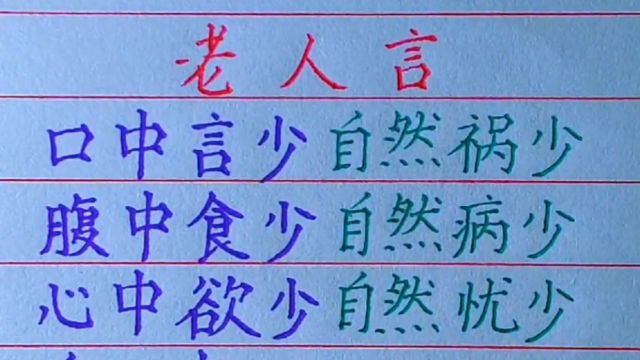 老人言
口中言少自然祸少
腹中食少自然病少
心中欲少自然忧少